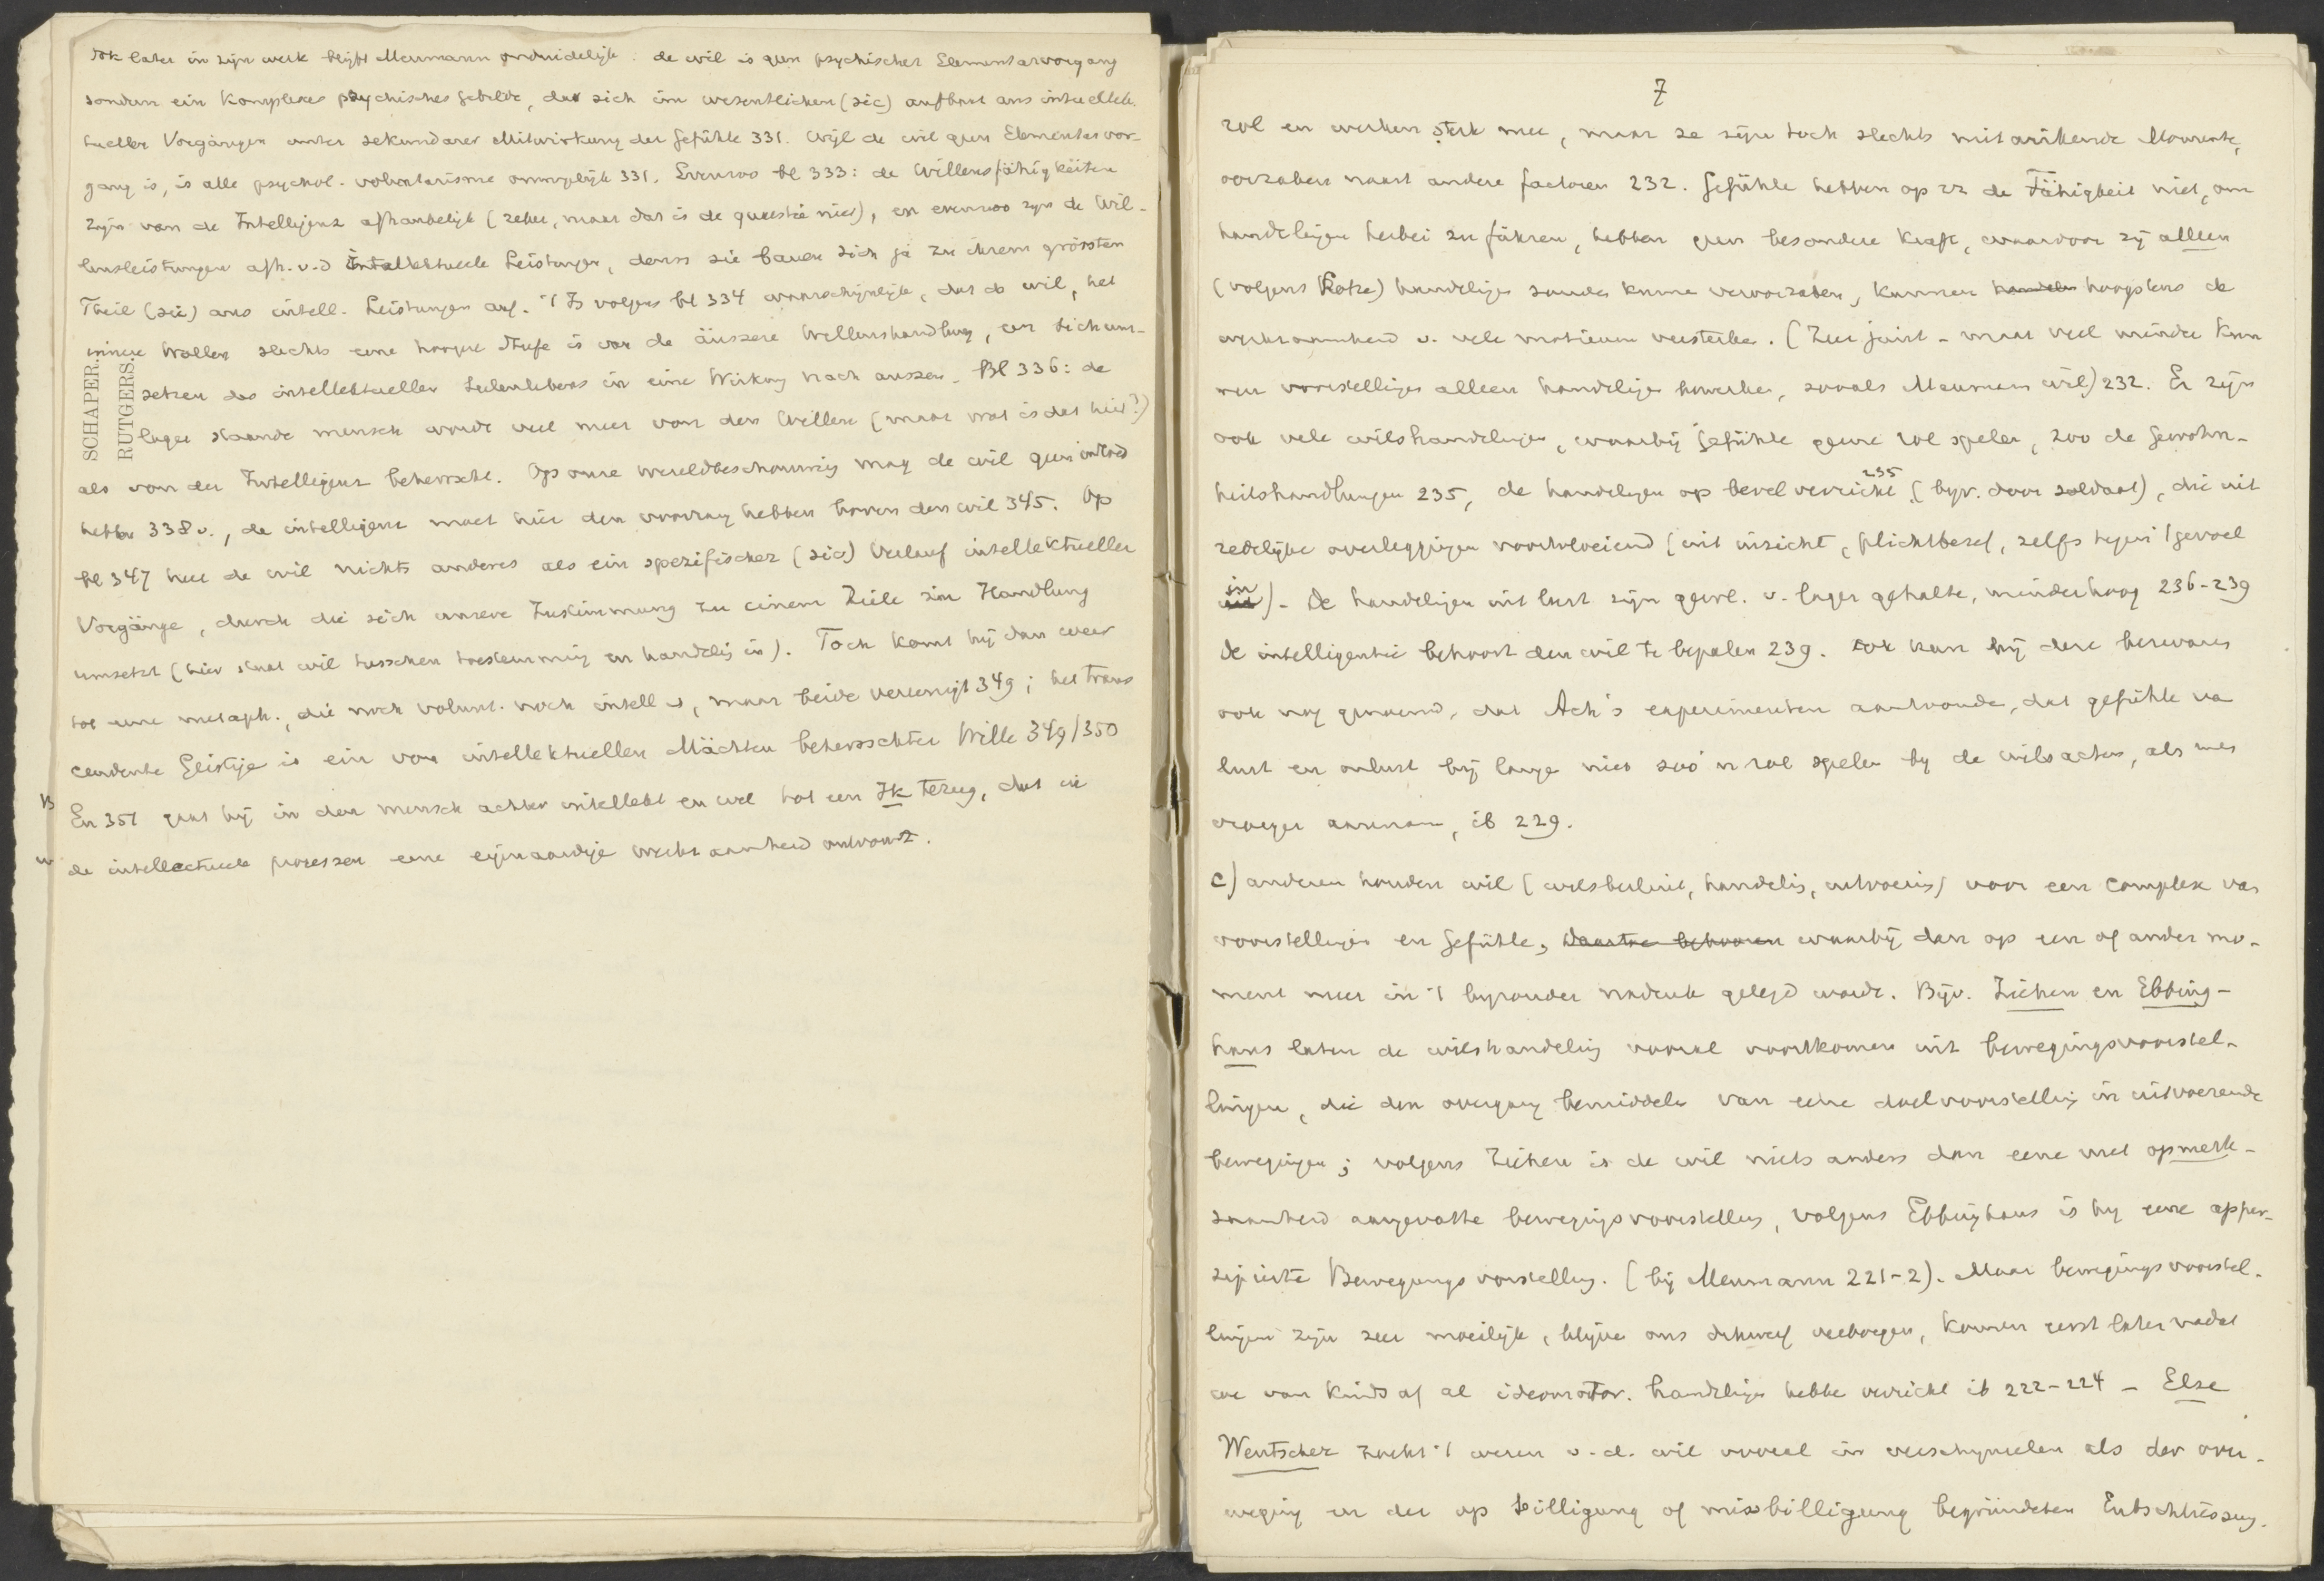 Ook later in zijn werk blijft Meumann onduidelijk. de wil is geen psychischer Elementarvorgang
sondern ein Komplexes psychisches Gebilde, das sich im wesentlichen (sic) aufbaut aus intellek-
tueller Vorgängen unter sekundarer Mitwirkung der Gefühle 331. Wijl de wil geen Elementarvor-
gang is, is alle psychol. voluntarisme onmogelijk 331. Evenzoo bl 333: de Willensfähigkeiten
zijn van de Intelligenz afhankelijk (zeker, maar dat is de quaestie niet), en evenzoo zijn de Wil-
lensleistungen afh. v.d intellektuelle Leistungen, denn sie bauen sich ja zu ihrem grössten
Theil (sic) aus intell. Leistungen auf. 't Is volgens bl 334 waarschijnlijk, dat de wil, het
innere Wollen slechts eene hoogere Stufe is van de äuszere Willenshandlung, een sich um-
setzen des intellektuellen Seelenlebens in eine Wirkung nach aussen. Bl 336: de
lager staande mensch wordt veel meer van den Willen (maar wat is dat hier?)
als von der Intelligenz beherrscht. Op onze wereldbeschouwing mag de wil geen invloed
hebben 338 v., de intelligenz moet hier den voorrang hebben boven den wil 345. Op
bl 347 heet de wil nichts anderes als ein spezifischer (sic) Verlauf intellektueller
Vorgänge, durch die sich unsere Zustimmung zu einem Ziele in Handlung
umsetzt (hier staat wil tusschen toestemming en handeling in). Toch komt hij dan weer
tot eene metaph., die noch volunt. noch intell is, maar beide vereenigt 349; het trans
cendente Geistige is ein von intellektuellen Mächten beherrschter Wille 349/350
En 351 gaat hij in den mensch achter intellekt en wil tot een Ik terug, dat in
de intellectueele processen eene eigenaardige werkzaamheid ontvouwt.
SCHAPER.
RUTGERS.
7
rol en werken sterk mee, maar ze zijn toch slechts mitwirkende Momente,
oorzaken naast andere factoren 232. Gefühle hebben op zz de Fähigkeit niet, om
handelingen herbei zu führen, hebben geen besondere Kraft, waardoor zij alleen
(volgens Lotze) handelingen zouden kunnen veroorzaken, kunnen hoogstens de
werkzaamheid v. vele motieven versterken. (Zeer juist - maar veel minder kun
nen voorstellingen alleen handelingen bewerken, zooals Meumann wil) 232. Er zijn
ook vele wilshandelingen, waarbij Gefühle geene rol spelen, zoo de Gewohn-
heitshandlungen 235, de handelingen op bevel verricht 235 (bijv. door soldaat), die uit
redelijke overleggingen voortvloeiend (uit inzicht, plichtbesef, zelfs tegen 't gevoel
in). De handelingen uit lust zijn gewl. v. lager gehalte, minder hoog 236-239
De intelligentie behoort den wil te bepalen 239. Ook kan bij deze bezwaren
ook nog genoemd, dat Ach's experimenten aantoonden, dat gefühle van
lust en onlust bij lange niet zoo'n rol spelen bij de wilsacten, als men
vroeger aannam, ib 229.
c) anderen houden wil (wilsbesluit, handeling, uitvoering) voor een complex van
voorstellingen en Gefühle, waarbij dan op een of ander mo-
ment meer in 't bijzonder nadruk gelegd wordt. Bijv. Ziehen en Ebbing-
haus laten de wilshandeling vooral voortkomen uit bewegingsvoorstel-
lingen, die den overgang bemiddelen van eene doelvoorstelling in uitvoerende
bewegingen; volgens Ziehen is de wil niets anders dan eene met opmerk-
zaamheid aangevatte bewegingsvoorstelling, volgens Ebbinghaus is hij eene apper-
zipierte Bewegungsvorstellung. (bij Meumann 221-2). Maar bewegingsvoorstel-
lingen zijn zeer moeilijk, blijven ons dikwerf verborgen, komen eerst later nadat
we van kinds af al ideomotor. handelingen hebben verricht ib 222-224 - Else
Wentscher zoekt 't wezen v. d. wil vooral in verschijnselen als der over-
weging en der op billigung of misbilligung begründeten Entschliessung.